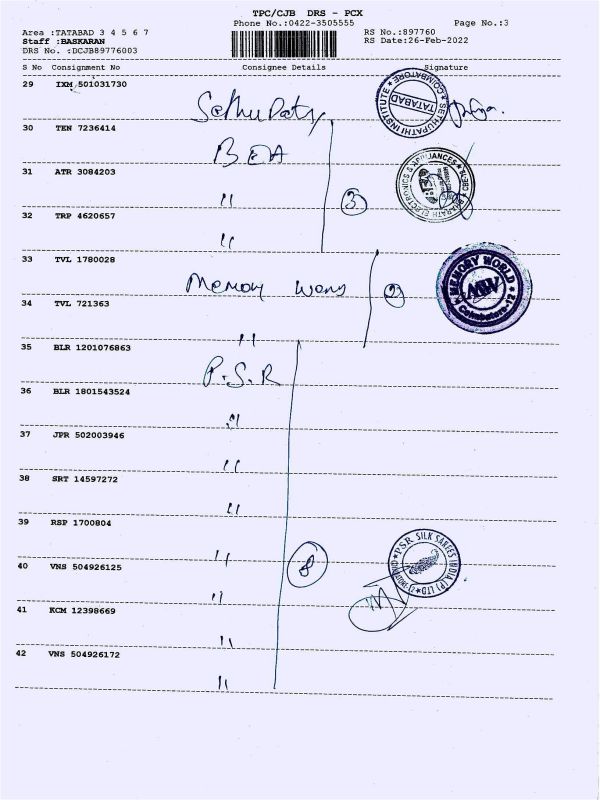 TPC/CJB DRS - PCX
Phone No.:0422-3505555 Page No.:3
Area :TATABAD 3 4 5 6 7 RS No.:897760
Staff :BASKARAN RS Date:26-Feb-2022
DRS No. :DCJB89776003
S No Consignment No Consignee Details Signature
29 IXM 501031730
SETHUPATHI INSTITUTE * COIMBATORE * TATABAD
30 TEN 7236414
BEA
31 ATR 3084203
" 3
BHARATH ELECTRONICS & APPLIANCES * CBE-12
32 TRP 4620657
"
33 TVL 1780028
Memory 2
MEMORY WORLD MW Coimbatore-12
34 TVL 721363
"
35 BLR 1201076863
P.S.R
36 BLR 1801543524
"
37 JPR 502003946
"
38 SRT 14597272
"
39 RSP 1700804
" 8
P.S.R. SILK SAREES INDIA (P) LTD
40 VNS 504926125
"
41 KCM 12398669
"
42 VNS 504926172
"